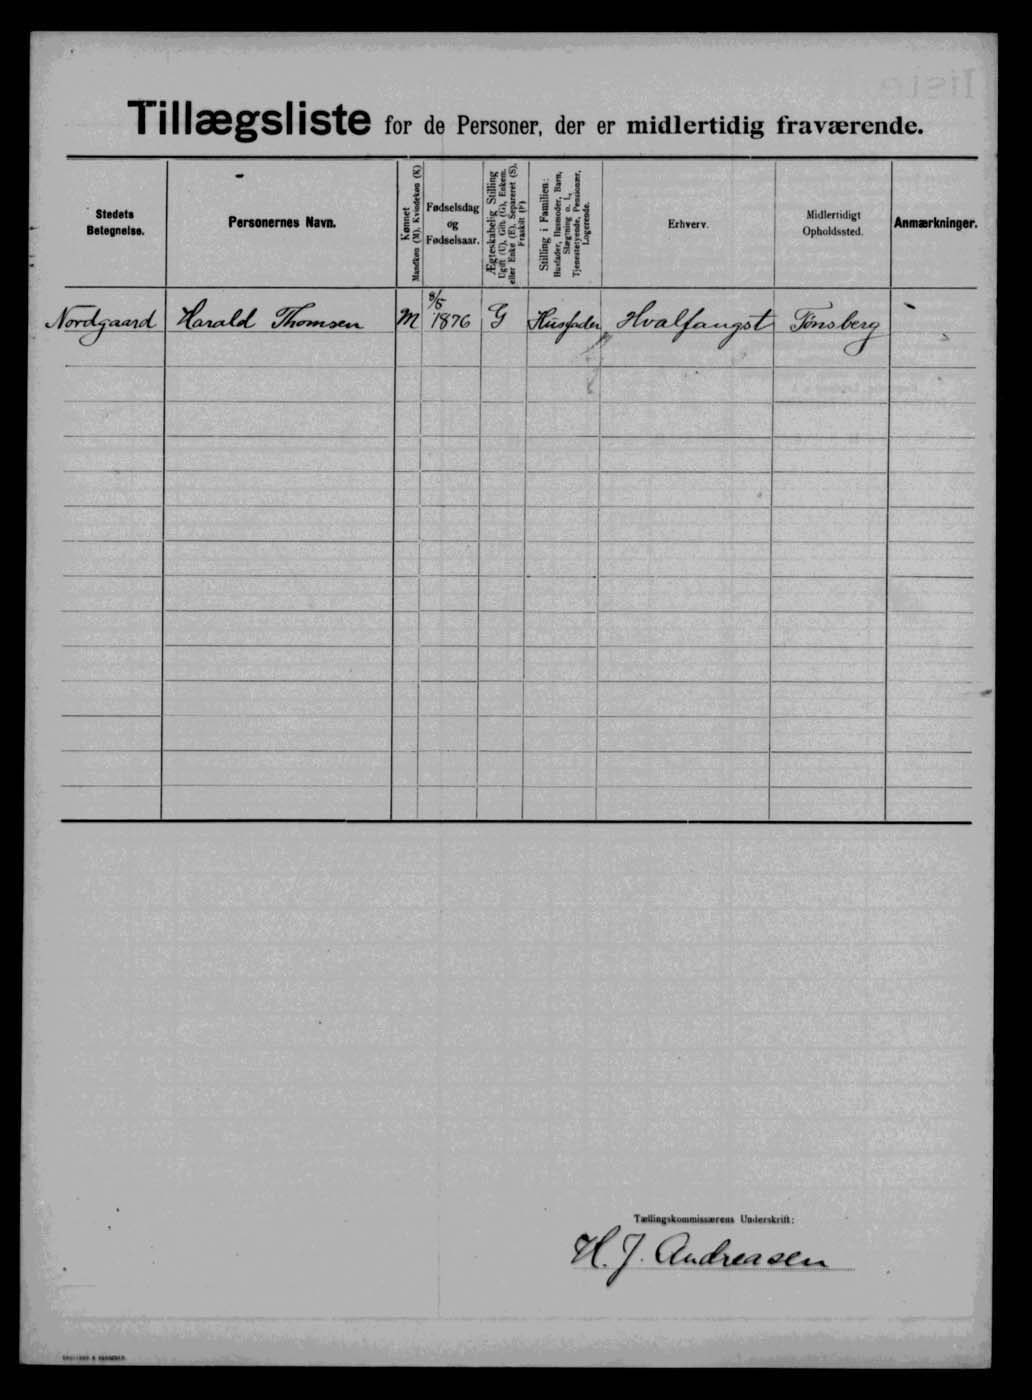 Tillægsliste for de Personer, der er midlertidig fraværende.
Stedets Betegnelse.
Personernes Navn.
Kønnet
Mandkøn (M). Kvindekøn (K)
Fødselsdag og Fødselsaar.
Ægteskabelig Stilling
Ugift (U), Gift (G), Enkem. eller Enke (E), Separeret (S), Fraskilt (F)
Stilling i Familien:
Husfader, Husmoder, Barn, Slægtning o. l., Tjenestetyende, Pensionær, Logerende.
Erhverv.
Midlertidigt Opholdssted.
Anmærkninger.
Nordgaard Harald Thomsen M 9/5 1876 G Husfader Hvalfangst Tønsberg
Tællingskommissærens Underskrift:
H. J. Andreasen